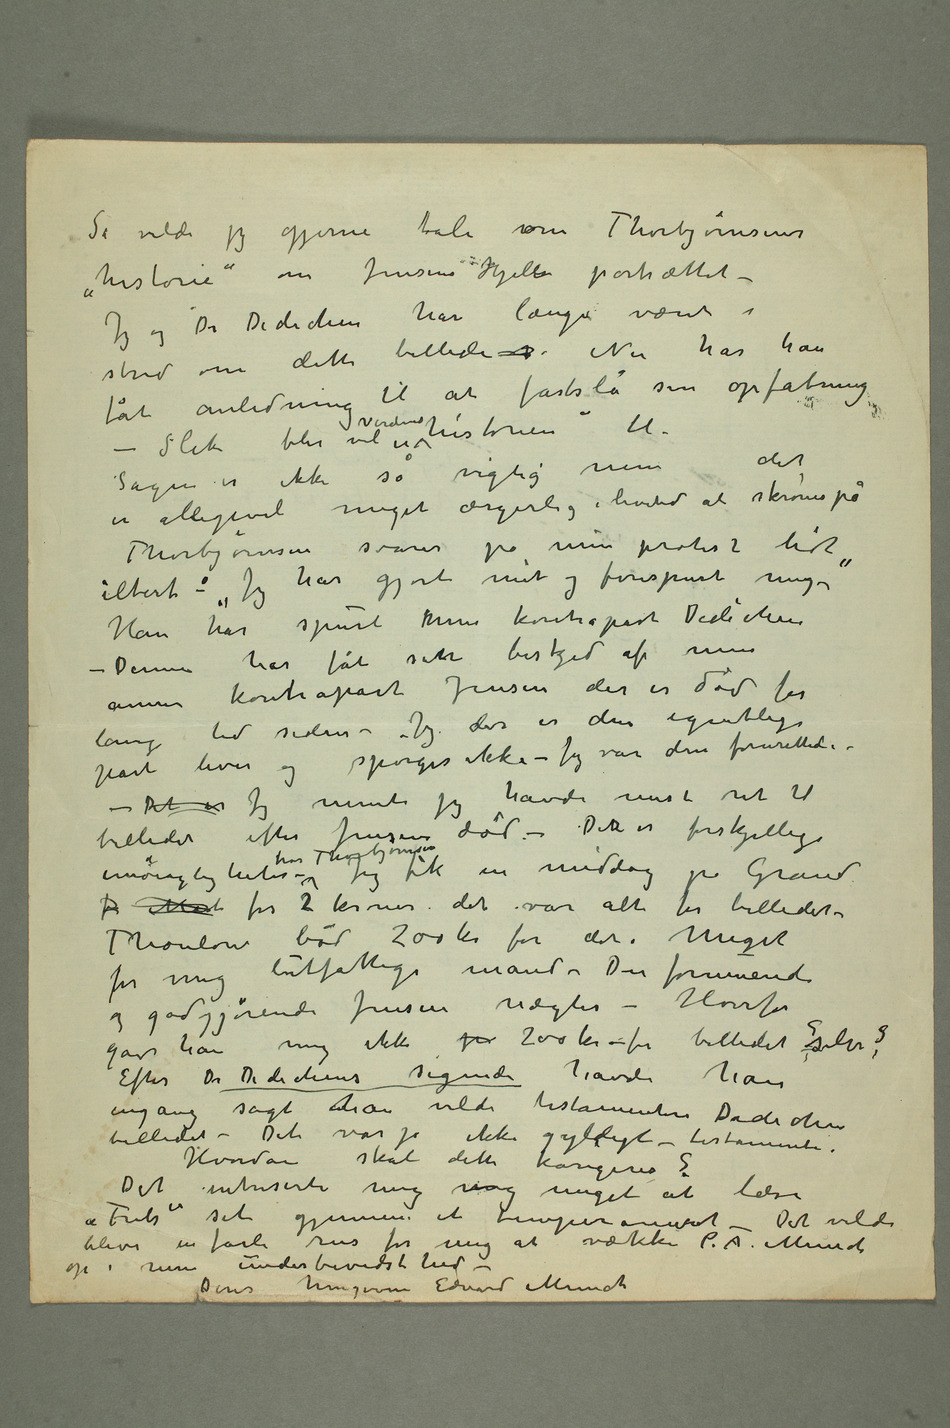 Så vilde jeg gjerne tale om Thorbjørnsens
„historie“ om Jensens Hjells portrættet –
Jeg og Dr Dedichen har længe været i
strid om dette billede – Nu har han
fåt anledning til at fastslå sin opfatning
– Slik blir vel verdens historien til –
Sagen er ikke så vigtig men det
er alligevel meget ærgerlig i hvitud at skrønes på
Thorbjørnsen svarer på min protest lidt
iltert – „Jeg har gjort mit og forespurt mig –“
Han har spurt min kontrapart Dedichen
– Denne har fåt sin beskjed af min
annen kontrapart Jensen der er død for
lang tid siden – Jeg der er den egentlige
part lever og spørges ikke – Jeg var den forurettede –
– Det er Jeg mente jeg havde mest ret til
billedet efter Jensens død – Det er forskjellige
unøiagtigheter hos Thorbjørnsen – Jeg fik en middag på Grand
for 2 kroner det var alt for billedet –
Thaulow bød 200 kr for det. Meget
for mig lutfattige mand – Den formuende
og godgjørende Jensen nægter – Hvorfor
gav han mig ikke 200 kr – for billedet selv?
Efter Dr Dedichens sigende havde han
engang sagt han vilde testamentere Dedichen
billedet – Det var jo ikke gyldigt – testamente.
Hvordan skal dette korrigeres?
Det intreserte mig meget at læse
„Frits“ set gjennem et temperament – Det vilde
blive en farlig rus for mig at vække P. A. Munch
op i min underbevidsthed –
Deres hengivne Edvard Munch